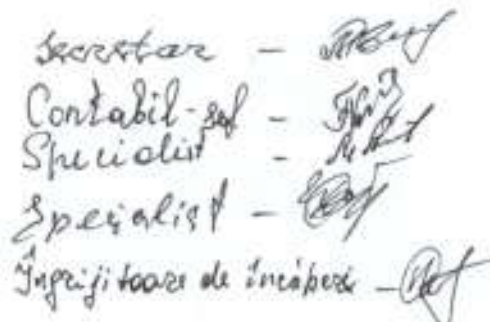 Secretar -
Contabil-șef -
Specialist -
Specialist -
Îngrijitoare de încăperi -